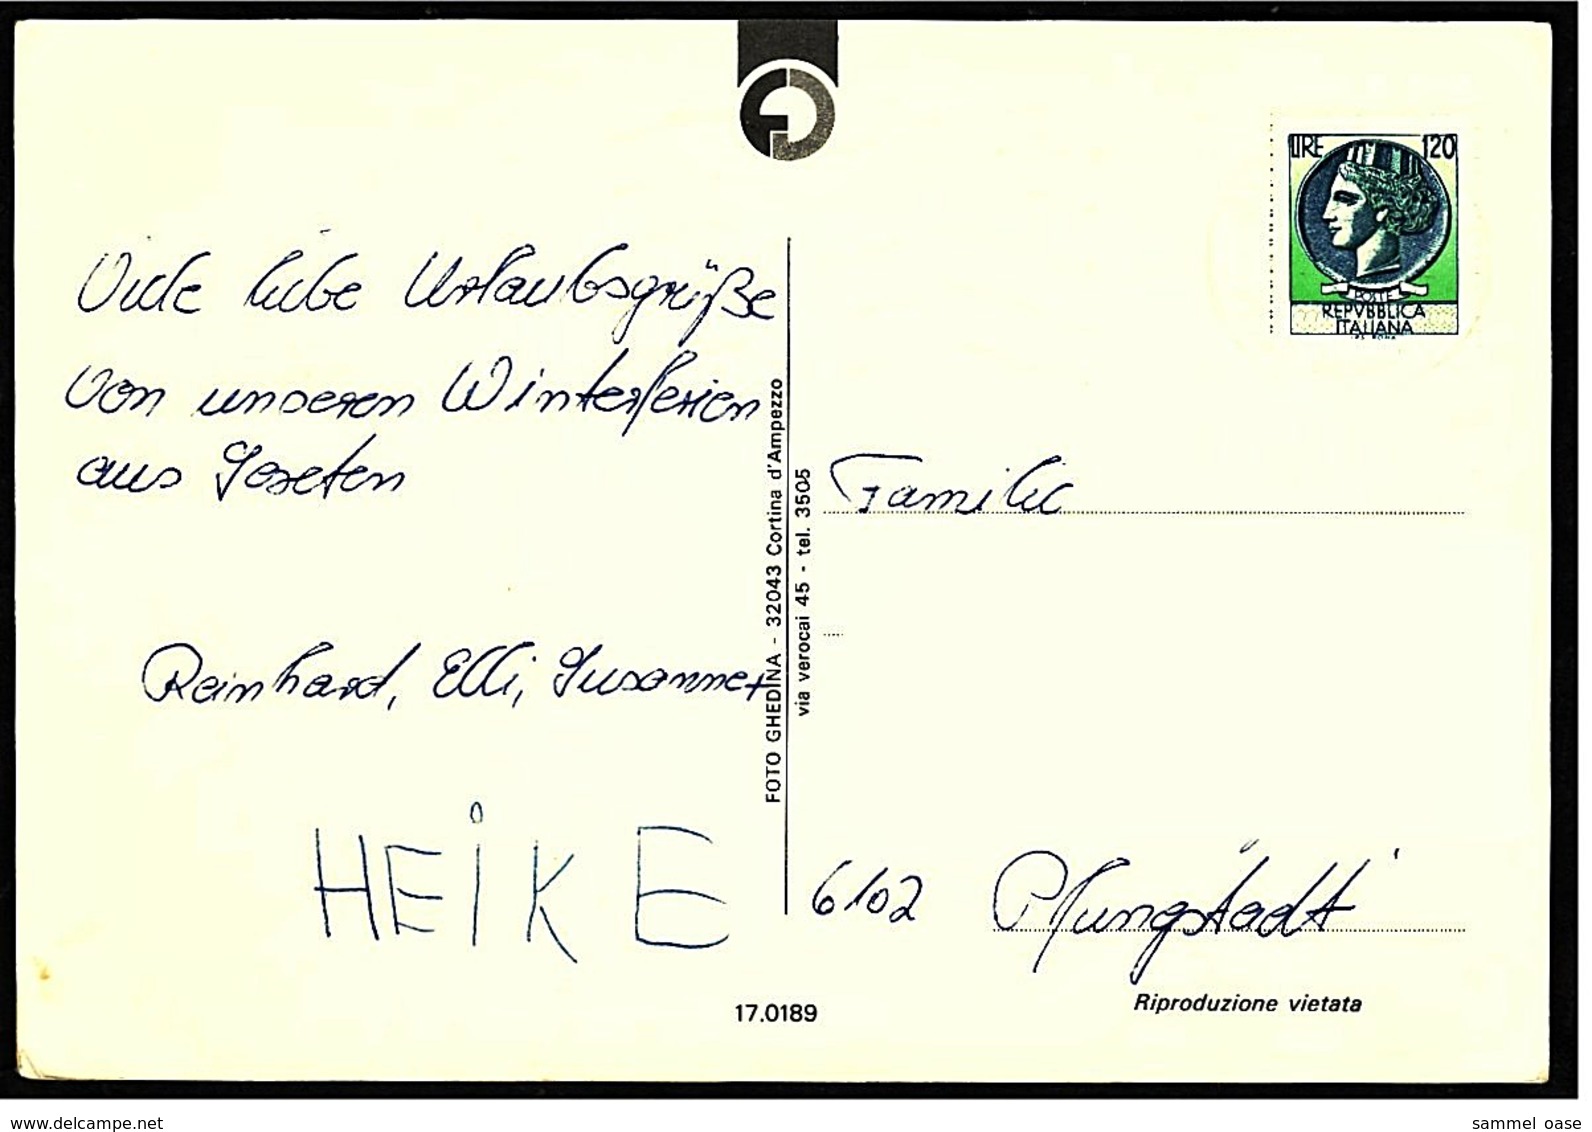 LIRE 120
POSTE
REPVBBLICA
ITALIANA
Viele liebe Urlaubsgrüße
von unseren Winterferien
aus
Reinhard, Elli, Susanne +
HEiKE
FOTO GHEDINA - 32043 Cortina d'Ampezzo
via verocai 45 - tel. 3505
Familie
6102 Pfungstadt
Riproduzione vietata
17.0189
delcampe.net
sammel_oase